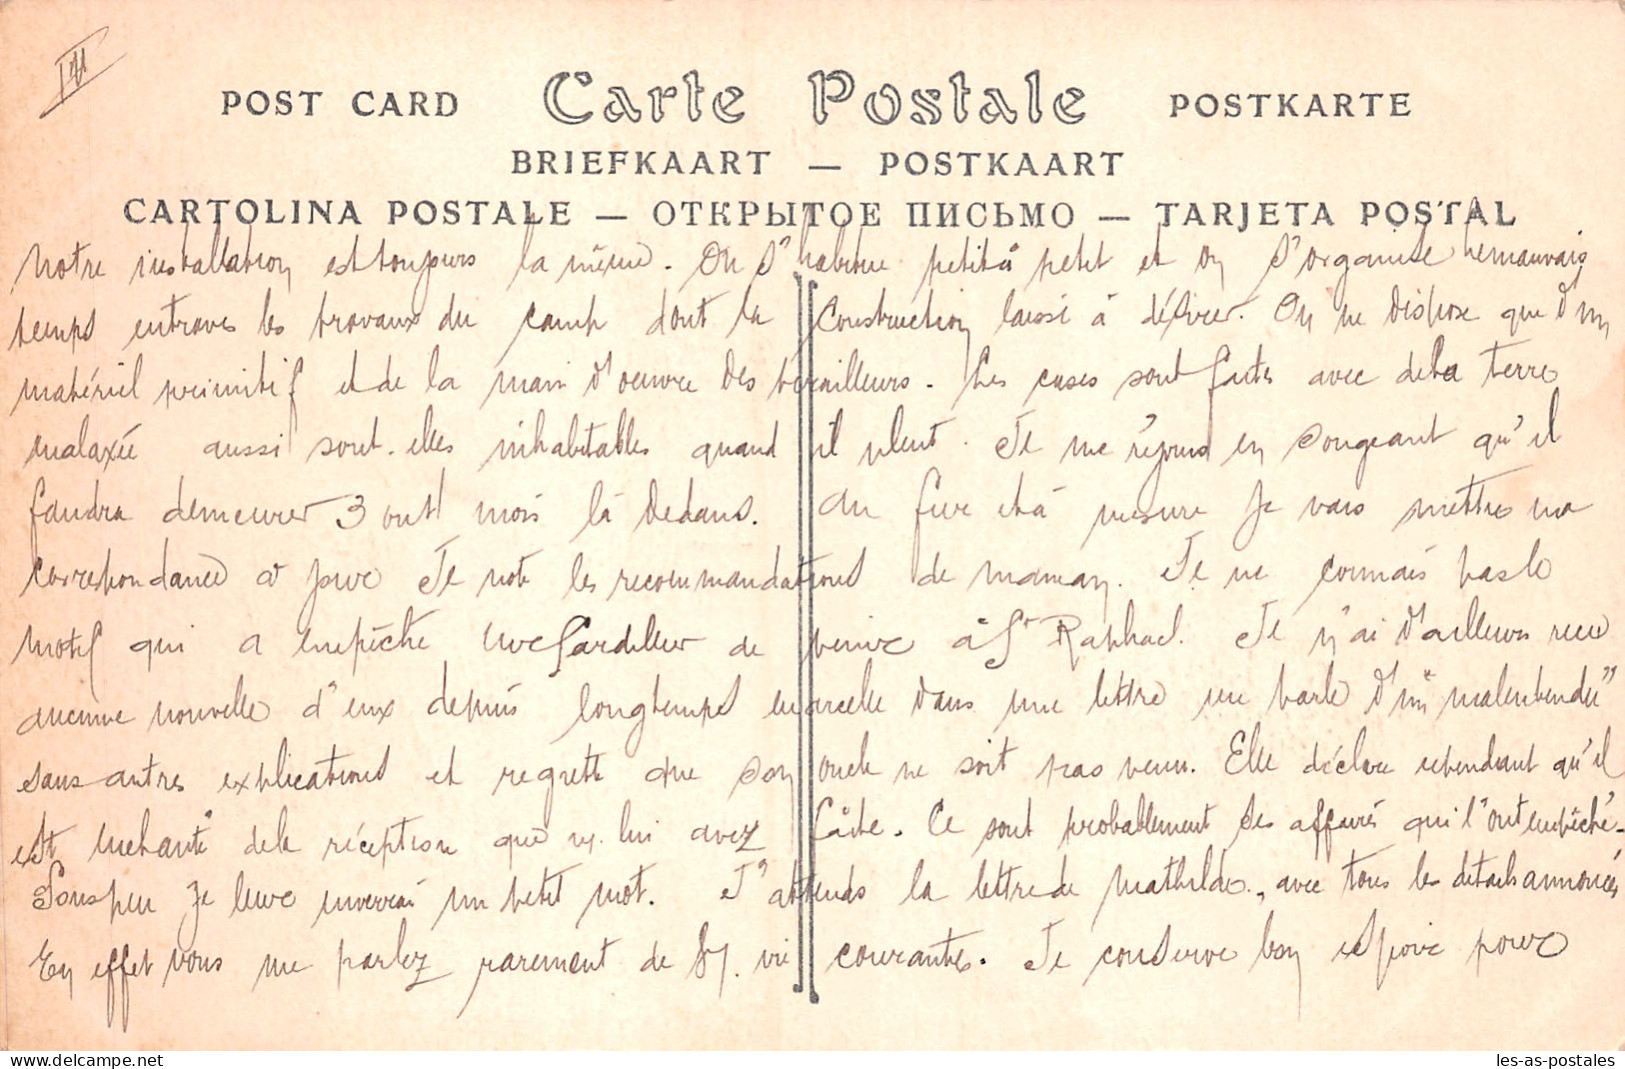 III
POST CARD Carte Postale POSTKARTE
BRIEFKAART — POSTKAART
CARTOLINA POSTALE — ОТКРЫТОЕ ПИСЬМО — TARJETA POSTAL
Notre installation est toujours la même. On s'habitue petit à petit et on s'organise le mauvais
temps entrave les travaux du camp dont la construction laisse à désirer. On ne dispose que d'un
matériel primitif et de la main d'oeuvre des tirailleurs. Les cases sont faites avec de la terre
malaxée aussi sont-elles inhabitables quand il pleut. Je me réjouis en songeant qu'il
faudra demeurer 3 ou 4 mois là dedans. Au fur et à mesure je vais mettre ma
correspondance à jour Je note les recommandations de maman. Je ne connais pas le
motif qui a empêché de venir à St Raphael. Je n'ai d'ailleurs reçu
aucune nouvelle d'eux depuis longtemps Marcelle dans une lettre me parle d'un "malentendu"
sans autres explications et regrette que son oncle ne soit pas venu. Elle déclare cependant qu'il
est enchanté de la réception que v. lui avez faite. Ce sont probablement des affaires qui l'ont empêché.
Sous peu je leur enverrai un petit mot. J'attends la lettre de Mathilde, avec tous les détails annoncés
En effet vous me parlez rarement de vie courante. Je conserve bon espoir pour
les-as-postales.com
les-as-postales